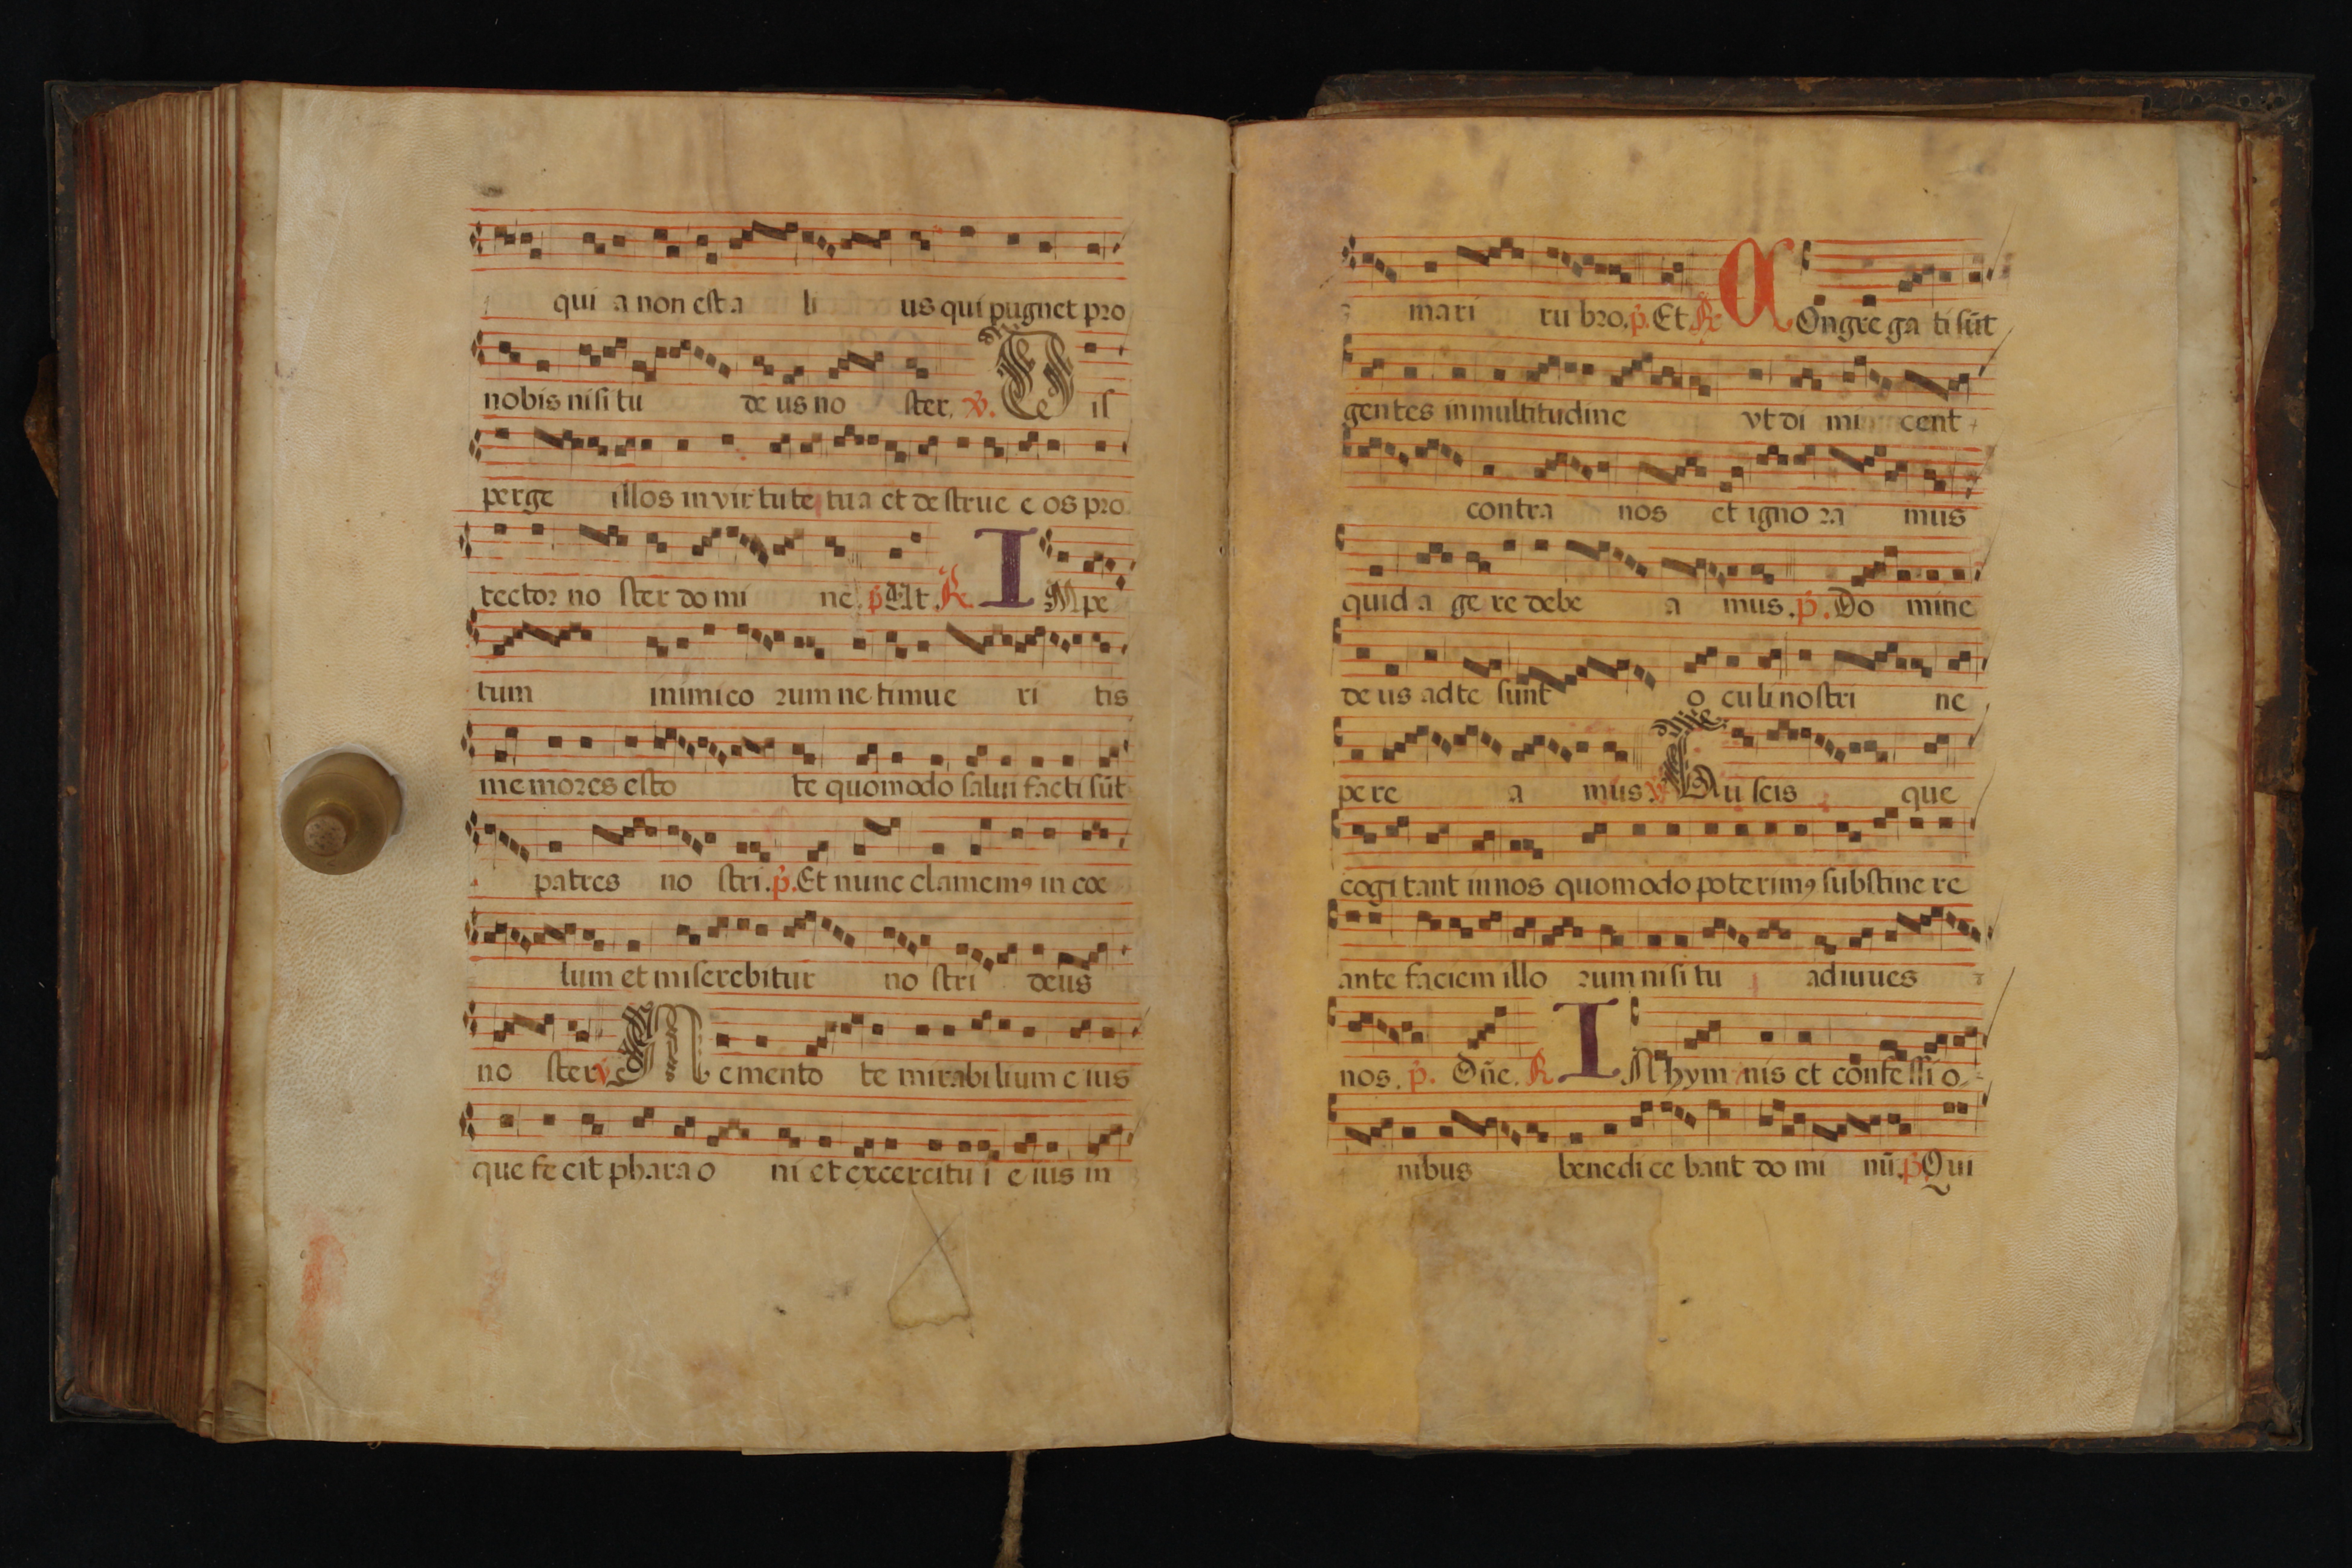 qui a non est a li us qui pugnet pro
nobis nisi tu de us no ster. v. Dis
perge illos in virtute tua et destrue e os pro
tector no ster do mi ne. p. Et. R. IMpe
tum inimico rum ne timue ri tis
memores esto te quomodo salui facti sũt
patres no stri. p. Et nunc clamemꝰ in coe
lum et miserebitur no stri deus
no ster v. Memento te mirabilium eius
que fe cit pharao ni et excercitu i e ius in
mari ru bro. p. Et R. COngre ga ti sũt
gentes in multitudine vt di mi cent
contra nos et igno ra mus
quid a ge re debe a mus. p. Do mine
de us ad te sunt o culi nostri ne
pe re a mus. v. Tu scis que
cogi tant in nos quomodo poterimꝰ substine re
ante faciem illo rum nisi tu adiuues
nos. p. Dñe. R. IN hym nis et confessi o
nibus benedi ce bant do mi nũ. p. Qui